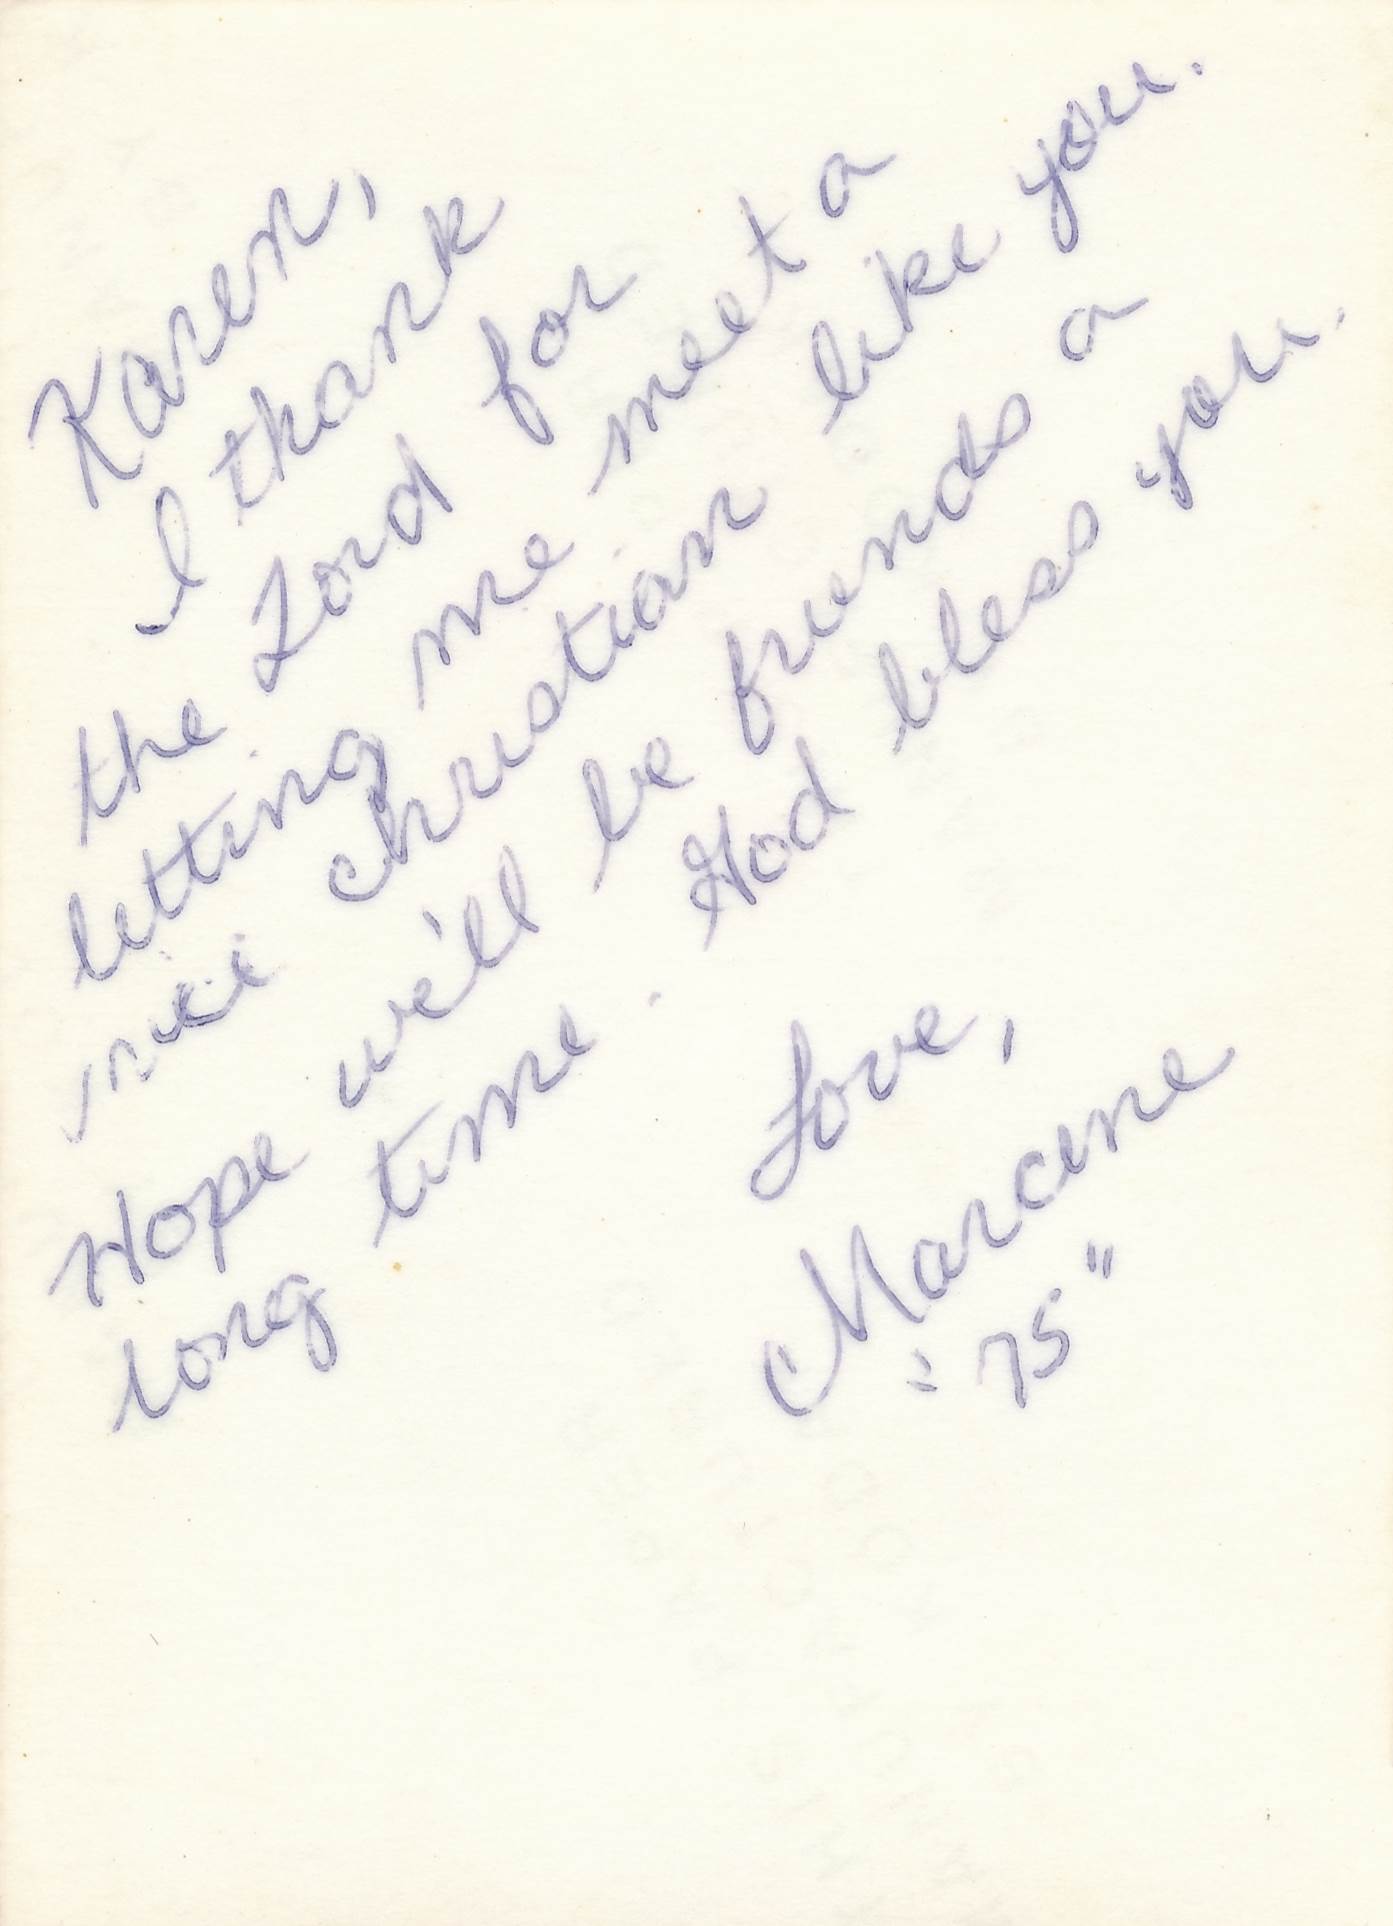 Karen,
I thank
the Lord for
letting me meet a
nice christian like you.
Hope we'll be friends a
long time. God bless you.
Love,
Marcene
"75"